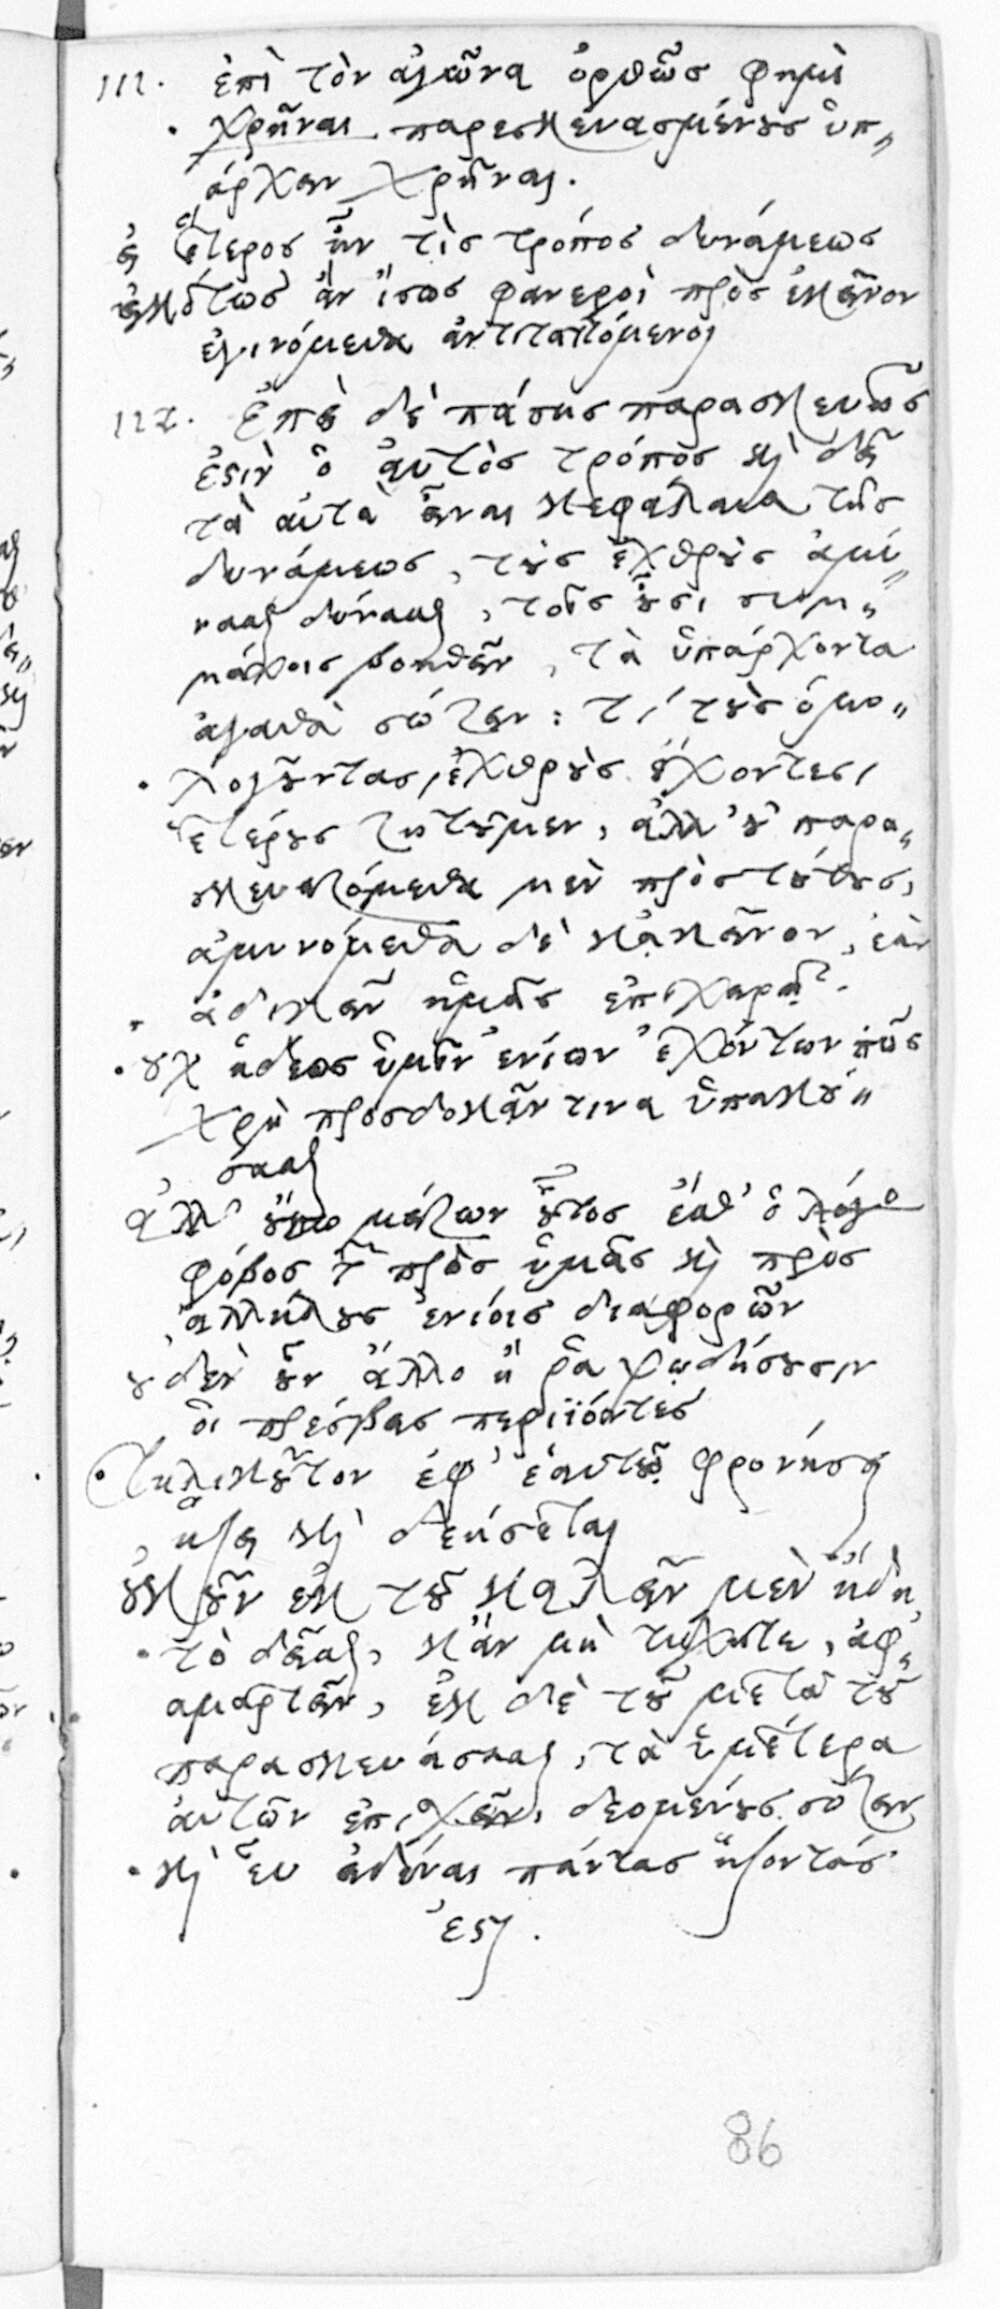 111. ἐπὶ τὸν ἀγῶνα ὀρθῶς φημὶ
χρῆναι παρεσκευασμένους ὑπ„
άρχειν χρῆναι.
εἰ ἕτερος ἦν τὶς τρόπος δυνάμεως
εἰκότως ἂν ἴσως φανεροὶ πρὸς ἐκεῖνον
ἐγινόμεθα ἀντιταττόμενοι
112. Ἐπεὶ δὲ πάσης παρασκευῆς
ἐστὶν ὁ αὐτὸς τρόπος καὶ δεῖ
τὰ αὐτὰ εἶναι κεφάλαια τῆς
δυνάμεως, τοὺς ἐχθροὺς ἀμύ„
νασθαι δύνασθαι, τοῖς οὖσι συμ„
μάχοις βοηθεῖν, τὰ ὑπάρχοντα
ἀγαθὰ σώζειν: τί τοὺς ὁμο„
λογοῦντας ἐχθροὺς ἔχοντες,
ἑτέρους ζητοῦμεν, ἀλλ' οὐ παρα„
σκευαζόμεθα μὲν πρὸς τούτους,
ἀμυνόμεθα δὲ κἀκεῖνον, ἐὰν
ἀδικεῖν ἡμᾶς ἐπιχειρῇ.
οὐχ ἡδέως ὑμῖν ἐνίων ἐχόντων πῶς
χρὴ προσδοκᾶν τινα ὑπακού„
σεσθαι
ἀλλ' μείζων οὗτος ἔσθ' ὁ
φόβος τῶν πρὸς ὑμᾶς καὶ πρὸς
ἀλλήλους ἐνίοις διαφορῶν
οὐδὲν οὖν ἄλλο ἢ ῥαψῳδήσουσιν
οἱ πρέσβεις περιϊόντες
Τηλικοῦτον ἐφ' ἑαυτῷ φρονήσει
ἥξει καὶ δεήσεται
οὐκοῦν ἐκ τοῦ καλεῖν μὲν ἤδη
τὸ δεῖσθαι, κἂν μὴ τύχητε, ἀφ„
αμαρτεῖν, ἐκ δὲ τοῦ μετὰ τοῦ
παρασκευάσασθαι, τὰ ὑμέτερα
αὐτῶν ἐπισχεῖν, δεομένους σώζειν
καὶ εὖ εἰδέναι πάντας ἥξοντάς
ἐστι.
86